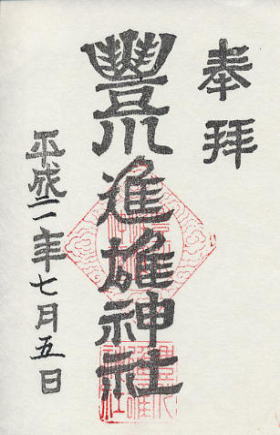 奉拝
豐川進雄神社
平成二一年七月五日